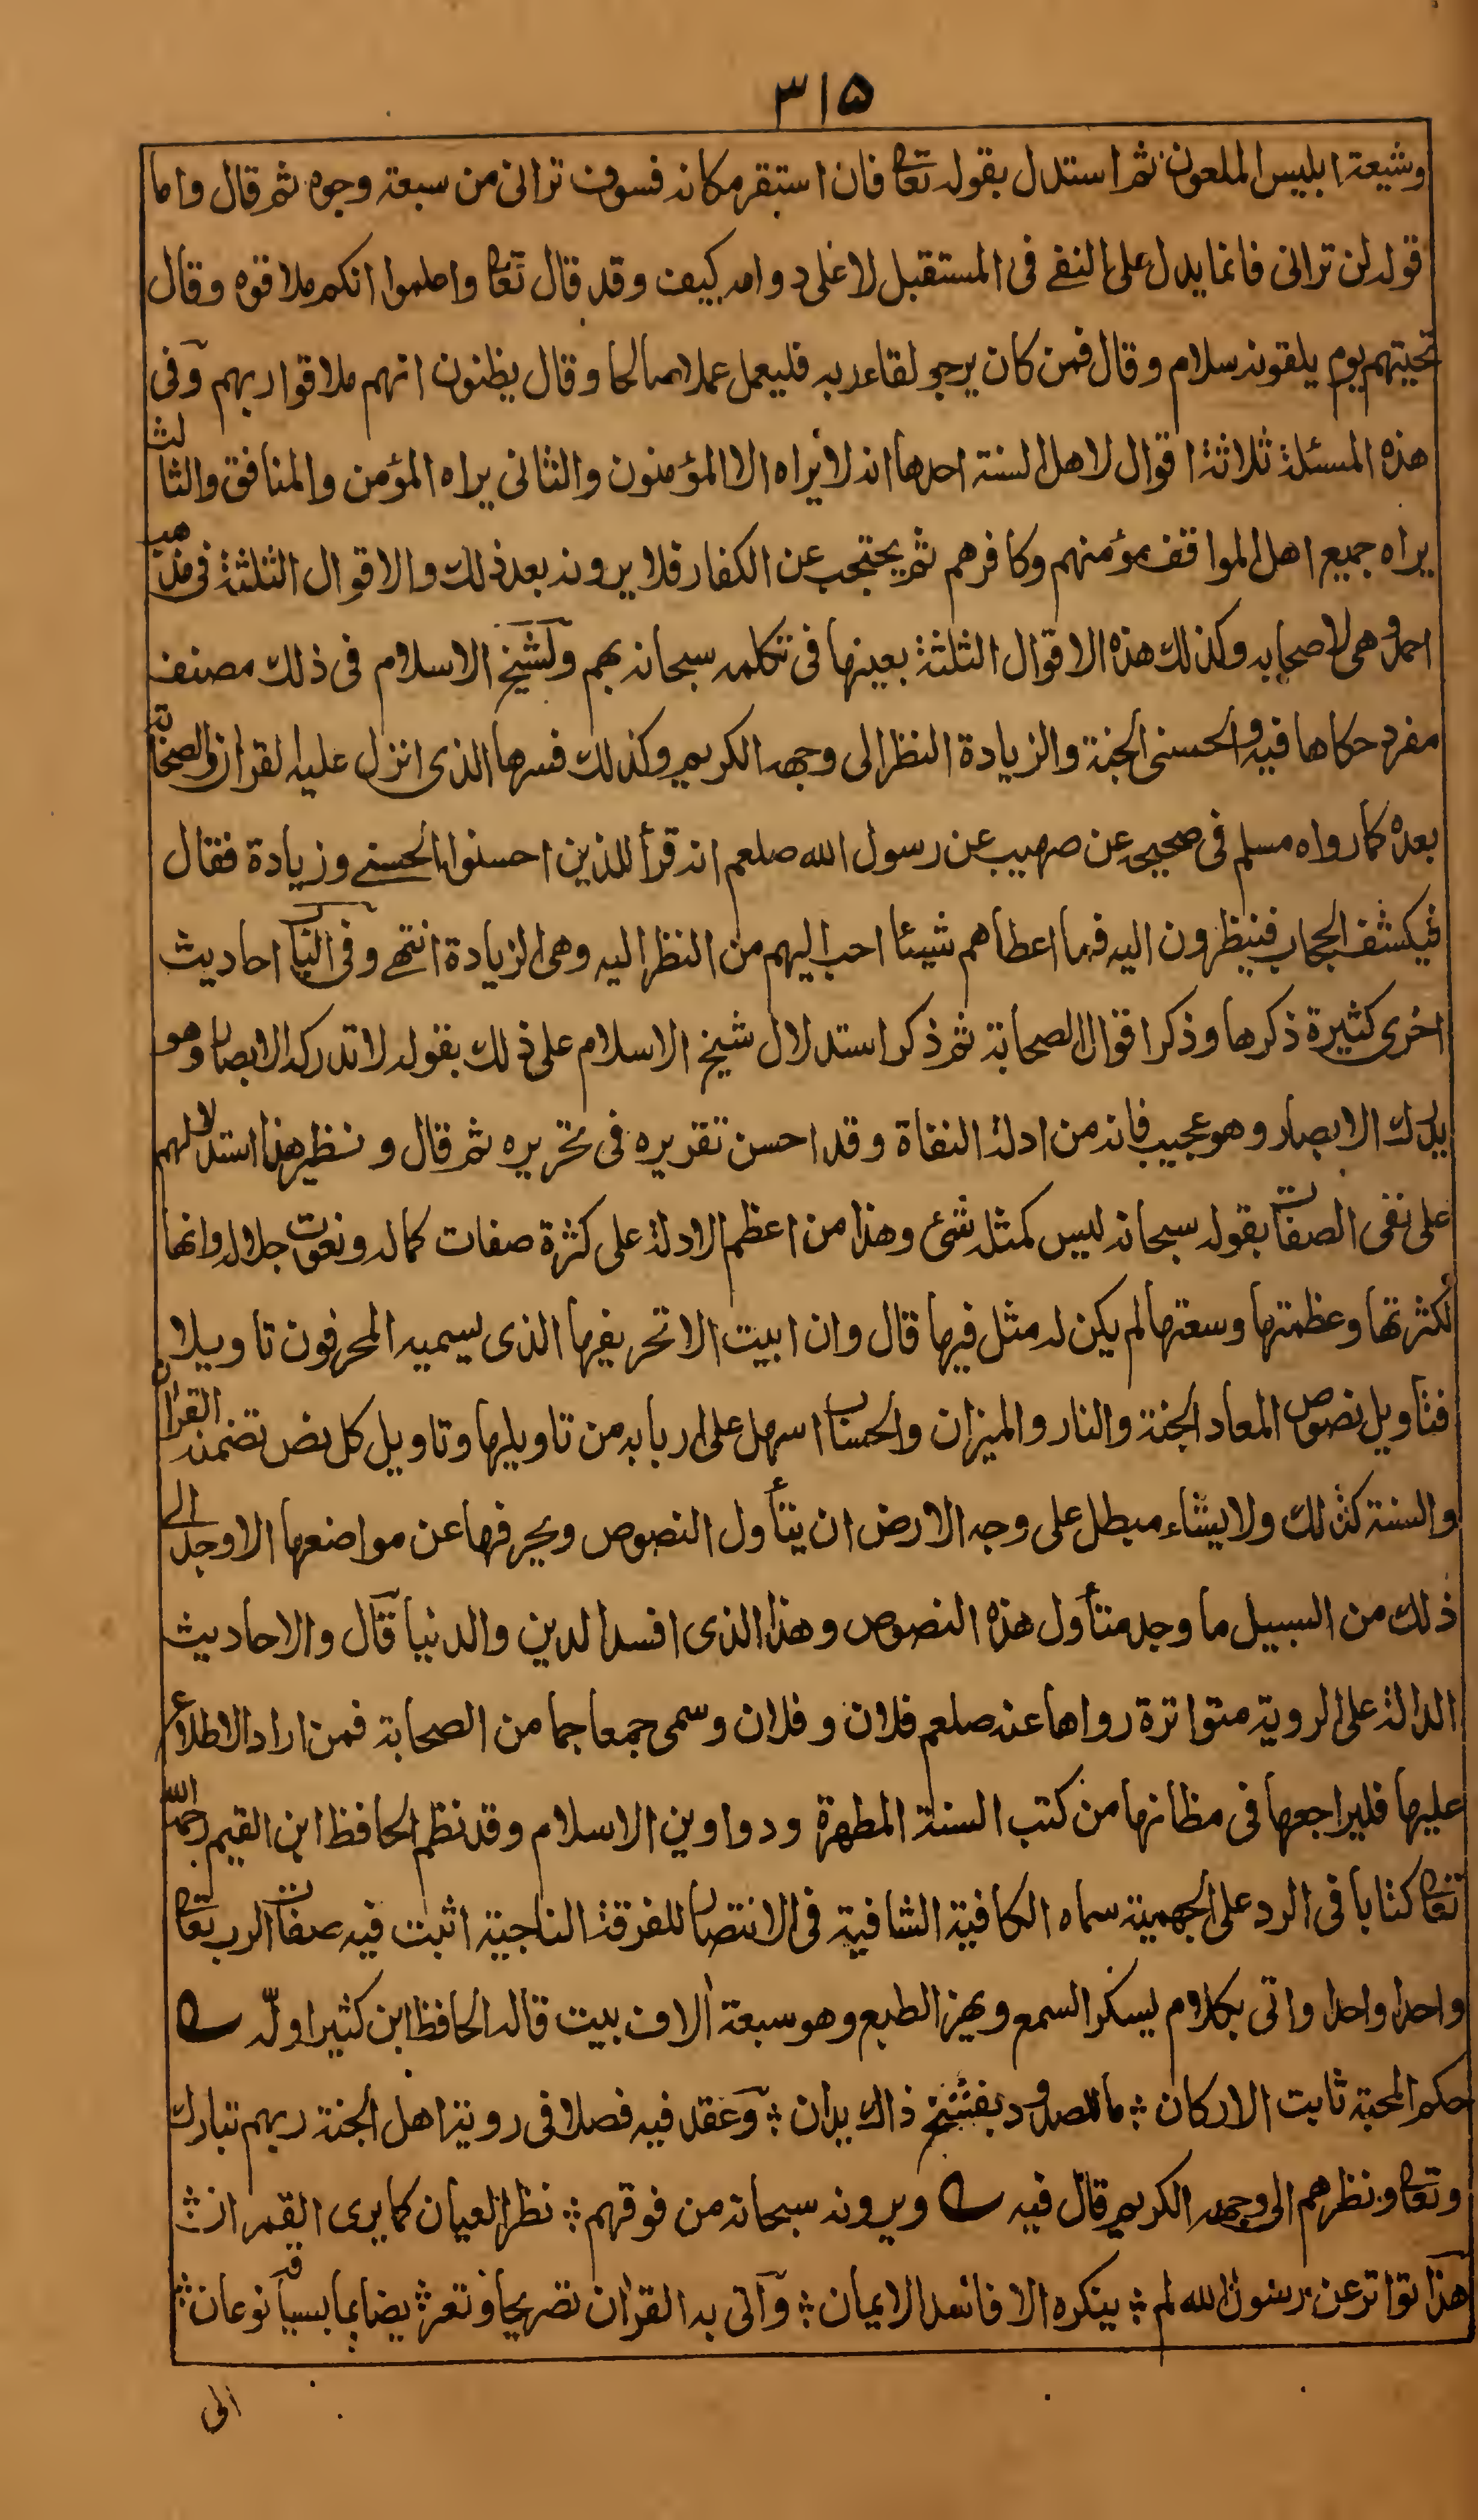 ٣١٥
وشيعة ابليس الملعون ثم استدل بقوله تعا فان استقر مكانه فسوف تراني من سبعة وجوه ثم قال واما
قوله لن تراني فانما يدل على النفي في المستقبل لا على دوامه كيف وقد قال تعا واعلموا انكم ملاقوه وقال
تحيتهم يوم يلقونه سلام وقال فمن كان يرجو لقاء ربه فليعمل عملا صالحا وقال يظنون انهم ملاقوا ربهم وفي
هذه المسئلة ثلاثة اقوال لاهل السنة احدها انه لا يراه الا المؤمنون والثاني يراه المؤمن والمنافق والثالث
يراه جميع اهل المواقف مؤمنهم وكافرهم ثم يحتجب عن الكفار فلا يرونه بعد ذلك والاقوال الثلثة في مذهب
احمد وهى لاصحابه وكذلك هذه الاقوال الثلثة بعينها في تكلمه سبحانه بهم ولشيخ الاسلام في ذلك مصنف
مفرد حكاها فيه والحسنى الجنة والزيادة النظر الى وجهه الكريم وكذلك فسرها الذي انزل عليه القران والصحابة
بعده كما رواه مسلم في صحيحه عن صهيب عن رسول الله صلعم انه قرأ للذين احسنوا الحسنى وزيادة فقال
فيكشف الحجاب فينظرون اليه فما اعطاهم شيئا احب اليهم من النظر اليه وهى الزيادة انتهى وفي البا احاديث
اخرى كثيرة ذكرها وذكر اقوال الصحابة ثم ذكر استدلال شيخ الاسلام على ذلك بقوله لا تدركه الابصار وهو
يدرك الابصار وهو عجيب فانه من ادلة النفاة وقد احسن تقريره في تحريره ثم قال ونظير هذا استدلالهم
على نفى الصفات بقوله سبحانه ليس كمثله شئ وهذا من اعظم الادلة على كثرة صفات كماله ونعوت جلاله وانها
لكثرتها وعظمتها وسعتها لم يكن له مثل فيها قال وان ابيت الا تحريفها الذي يسميه المحرفون تاويلا
فتأويل نصوص المعاد الجنة والنار والميزان والحساب اسهل على اربابه من تاويلها وتاويل كل نص تضمنه القران
والسنة كذلك ولا يشاء مبطل على وجه الارض ان يتأول النصوص ويحرفها عن مواضعها الا وجد الى
ذلك من السبيل ما وجد متأول هذه النصوص وهذا الذي افسد الدين والدنيا قال والاحاديث
الدالة على الروية متواترة رواها عنه صلعم فلان وفلان وسمى جمعا جما من الصحابة فمن اراد الاطلاع
عليها فليراجعها في مظانها من كتب السنة المطهرة ودواوين الاسلام وقد نظم الحافظ ابن القيم رحمه الله
تعا كتابا في الرد على الجهمية سماه الكافية الشافية في الانتصار للفرقة الناجية اثبت فيه صفات الرب تعا
واحدا واحدا واتى بكلام يسكر السمع ويهز الطبع وهو سبعة الاف بيت قاله الحافظ ابن كثير اوله
حكم المحبة ثابت الاركان ؞ ما للصدود بفسخ ذاك يدان ؞ وعقد فيه فصلا في روية اهل الجنة ربهم تبارك
وتعا ونظرهم الى وجهه الكريم قال فيه ويرونه سبحانه من فوقهم ؞ نظر العيان كما يرى القمران ؞
هذا تواتر عن رسول الله لم ؞ ينكره الا فاسد الايمان ؞ وأتى به القران تصريحا وتعر ؞ يضا بما بسياقه نوعان ؞